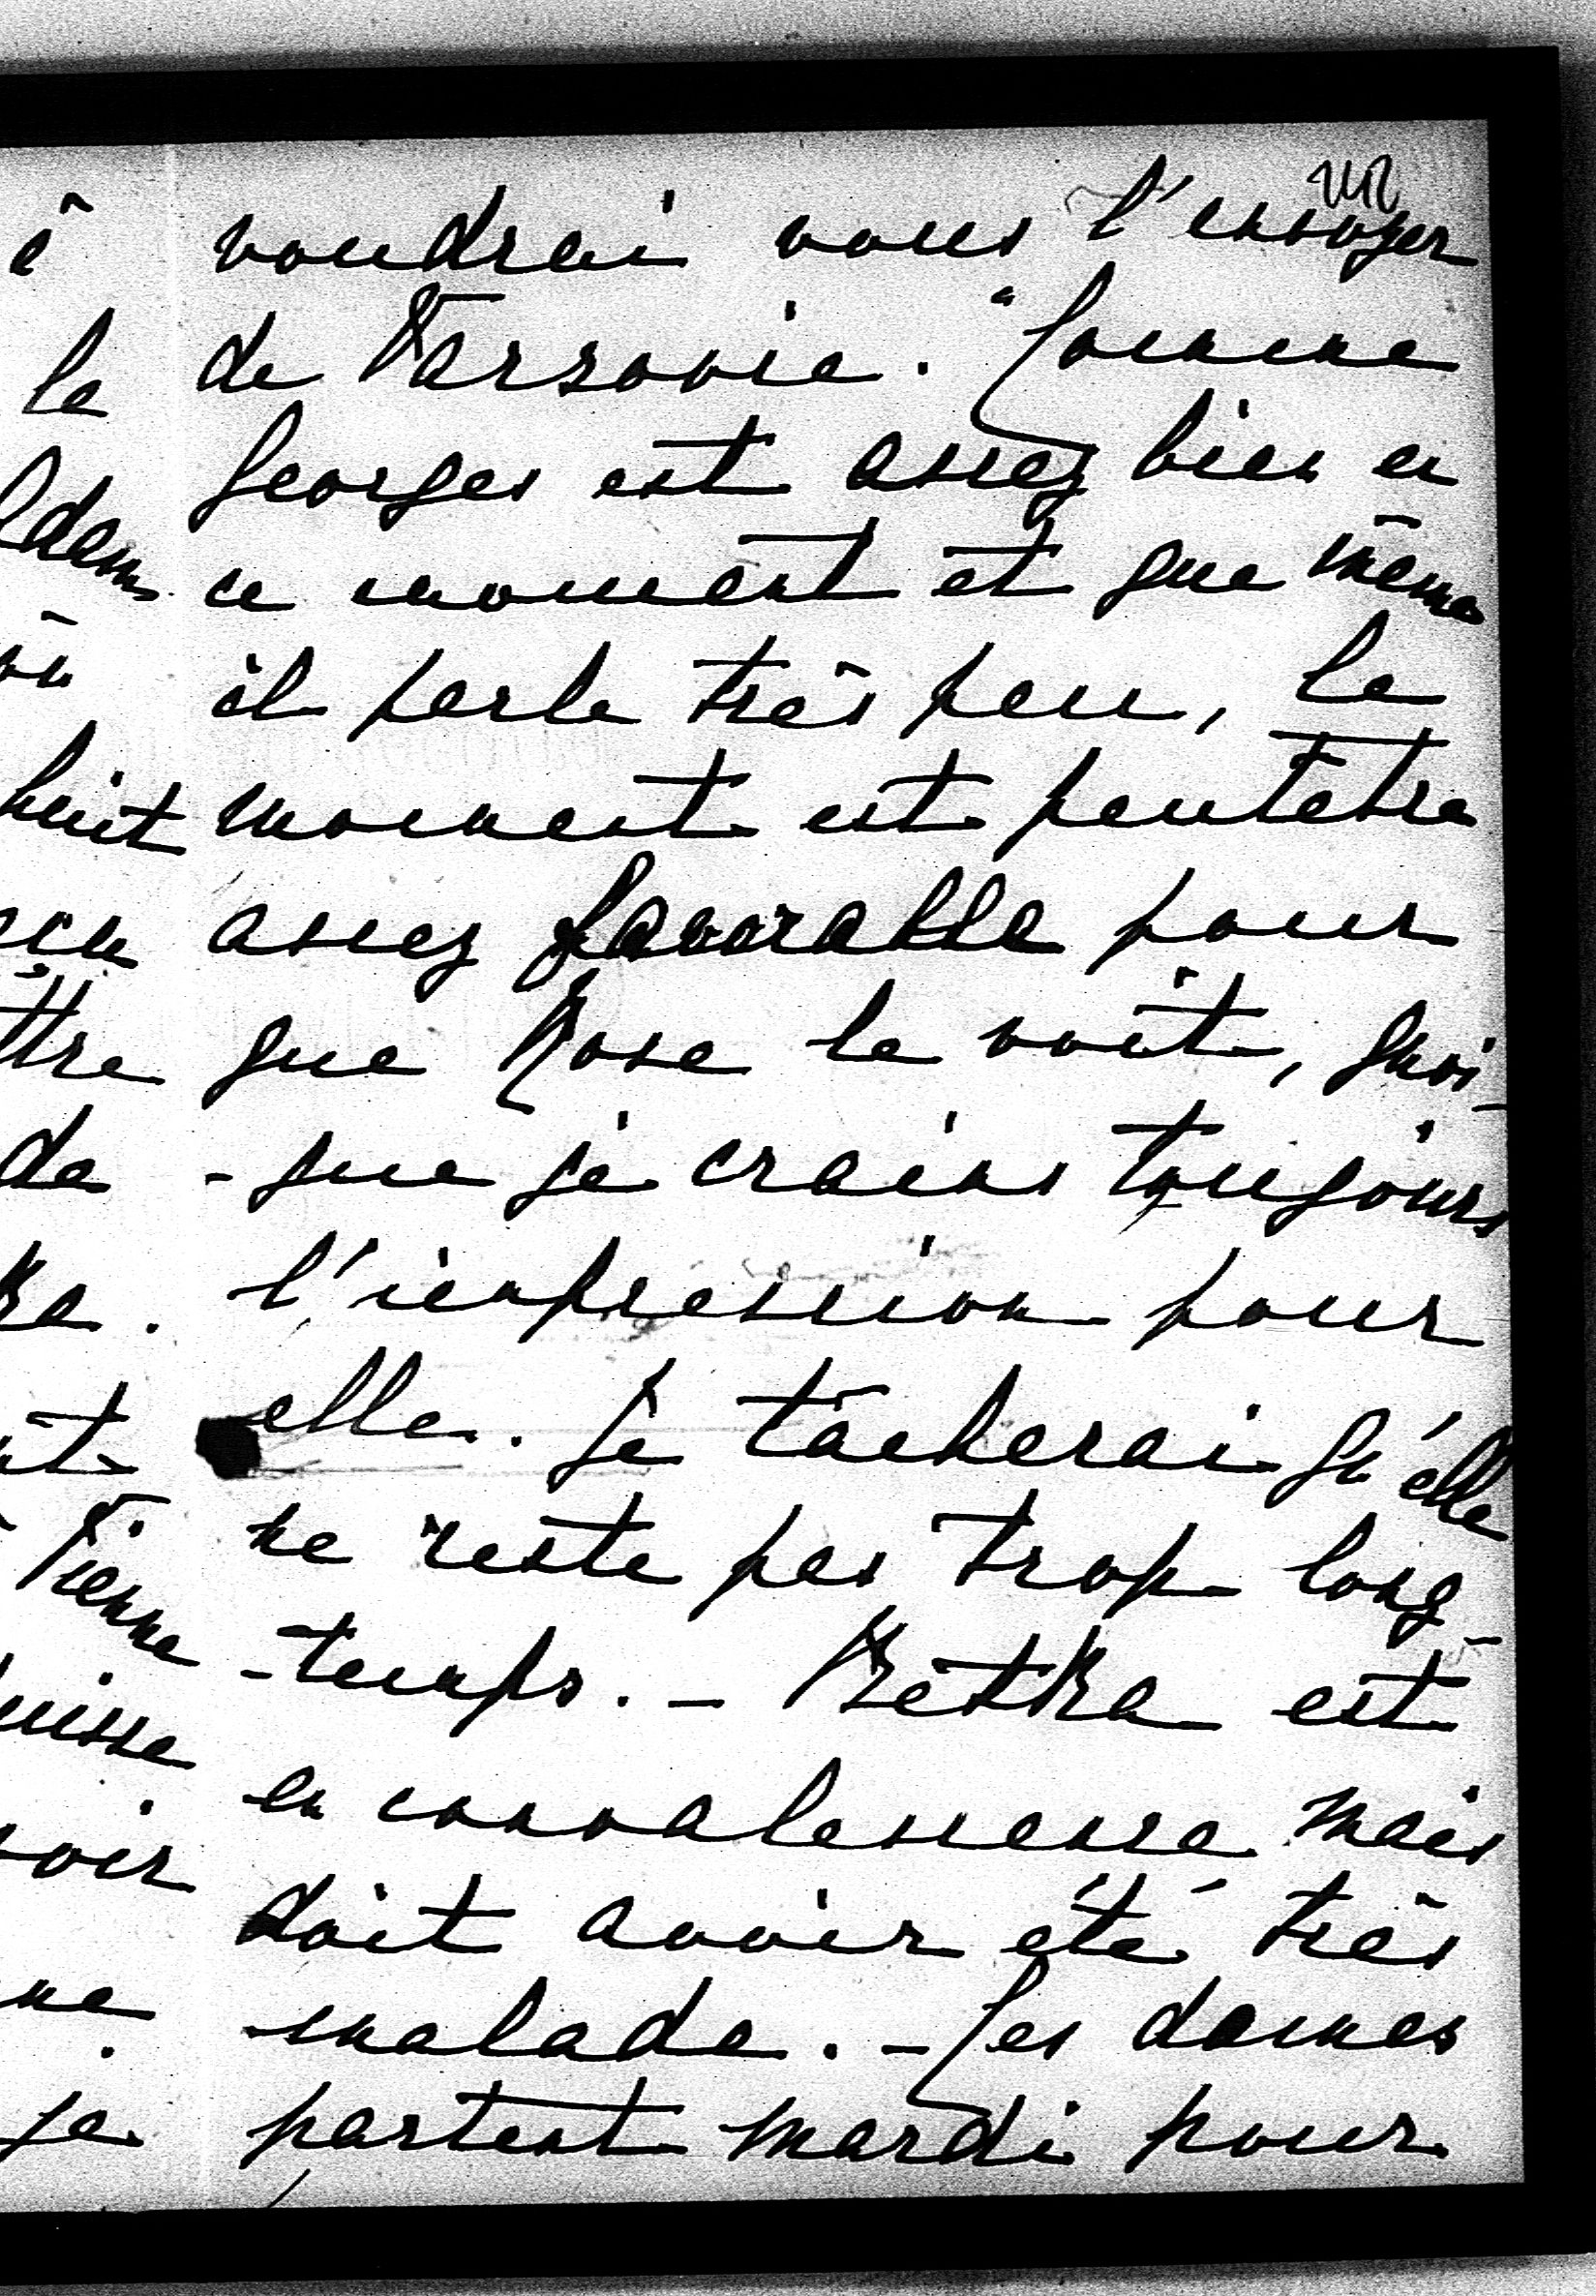 voudrai vous l'envoyer
de Varsovie. "Comme
Georges est assez bien en
ce moment et que même
il parle très peu, le
moment est peutetre
assez favorable pour
que Rose le voit, quoi-
-que je crains toujours
l'impression pour
elle. Je tâcherai qu'elle
ne reste pas trop long-
-temps. - Betka est
en convalescence mais
doit avoir été très
malade. - Ces dames
partent mardi pour
le
Adam
huit
de
Vienne
uisse
voir
je